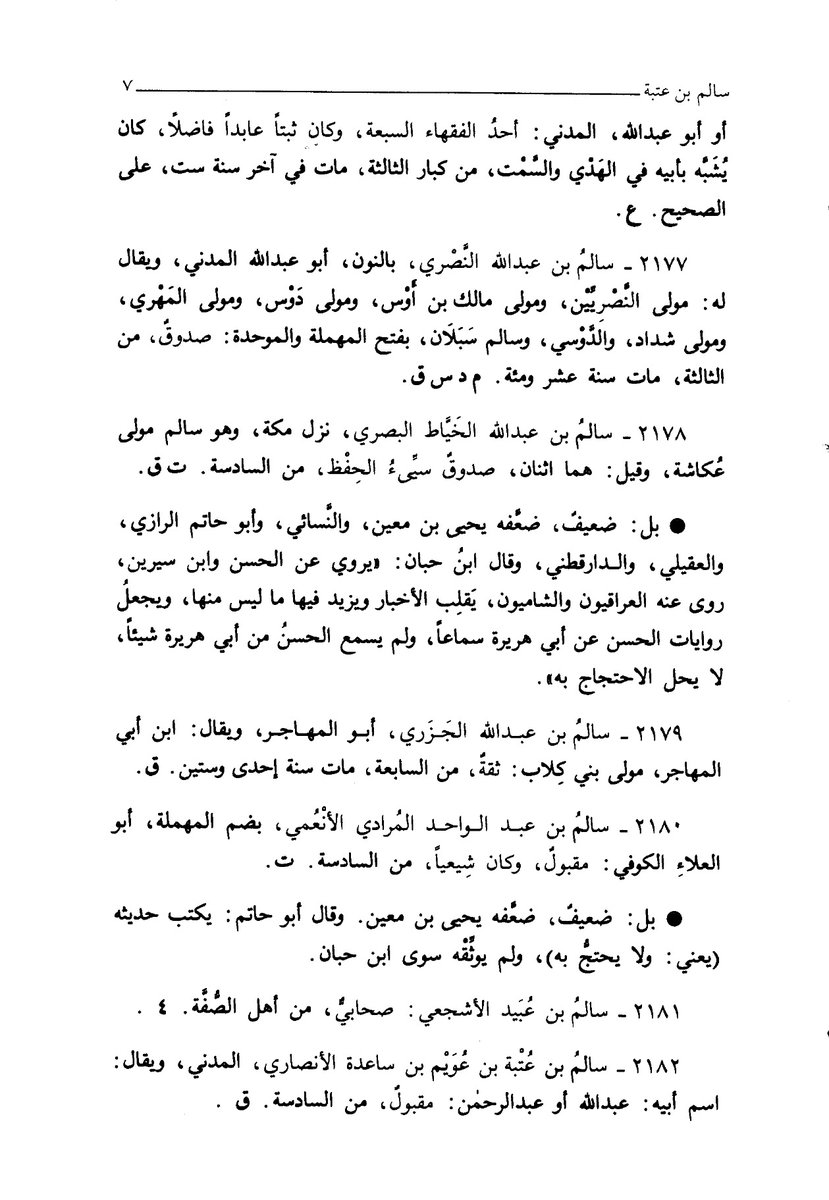 سالم بن عتبة ٧
أو أبو عبدالله، المدني: أحدُ الفقهاء السبعة، وكان ثبتاً عابداً فاضلًا، كان
يُشَبَّه بأبيه في الهَدْي والسَّمْت، من كبار الثالثة، مات في آخر سنة ست، على
الصحيح. ع.
٢١٧٧ ـ سالمُ بن عبدالله النَّصْري، بالنون، أبو عبدالله المدني، ويقال
له: مولى النَّصْريِّيْن، ومولى مالك بن أَوْس، ومولى دَوْس، ومولى المَهْري،
ومولى شداد، والدَّوْسي، وسالم سَبَلَان، بفتح المهملة والموحدة: صدوقٌ، من
الثالثة، مات سنة عشر ومئة. م د س ق.
٢١٧٨ ـ سالمُ بن عبدالله الخَيَّاط البصري، نزل مكة، وهو سالم مولى
عُكاشة، وقيل: هما اثنان، صدوقٌ سيِّىءُ الحِفْظ، من السادسة. ت ق.
● بل: ضعيفٌ، ضعَّفه يحيى بن معين، والنَّسائي، وأبو حاتم الرازي،
والعقيلي، والـدارقطني، وقال ابنُ حبان: «يروي عن الحسن وابن سيرين،
روى عنه العراقيون والشاميون، يَقلِب الأخبار ويزيد فيها ما ليس منها، ويجعلُ
روايات الحسن عن أبي هريرة سماعاً، ولم يسمع الحسنُ من أبي هريرة شيئاً،
لا يحل الاحتجاج به».
٢١٧٩ ـ سالمُ بن عبـدالله الجَـزَري، أبـو المهـاجـر، ويقال: ابن أبي
المهاجر، مولى بني كِلاب: ثقةٌ، من السابعة، مات سنة إحدى وستين. ق.
٢١٨٠ ـ سالمُ بن عبـد الـواحـد المُرادي الأنْعُمي، بضم المهملة، أبو
العلاءِ الكوفي: مقبولٌ، وكان شِيعياً، من السادسة. ت.
● بل: ضعيفٌ، ضعَّفه يحيى بن معين. وقال أبو حاتم: يكتب حديثه
(يعني: ولا يحتجُّ به)، ولم يوثِّقْه سوى ابن حبان.
٢١٨١ ـ سالمُ بن عُبَيد الأشجعي: صحابيٌّ، من أهل الصُّفَّة. ٤ .
٢١٨٢ ـ سالمُ بن عُتْبة بن عُوَيْم بن ساعدة الأنصاري، المدني، ويقال:
اسم أبيه: عبدالله أو عبدالرحمٰن: مقبولٌ، من السادسة. ق .